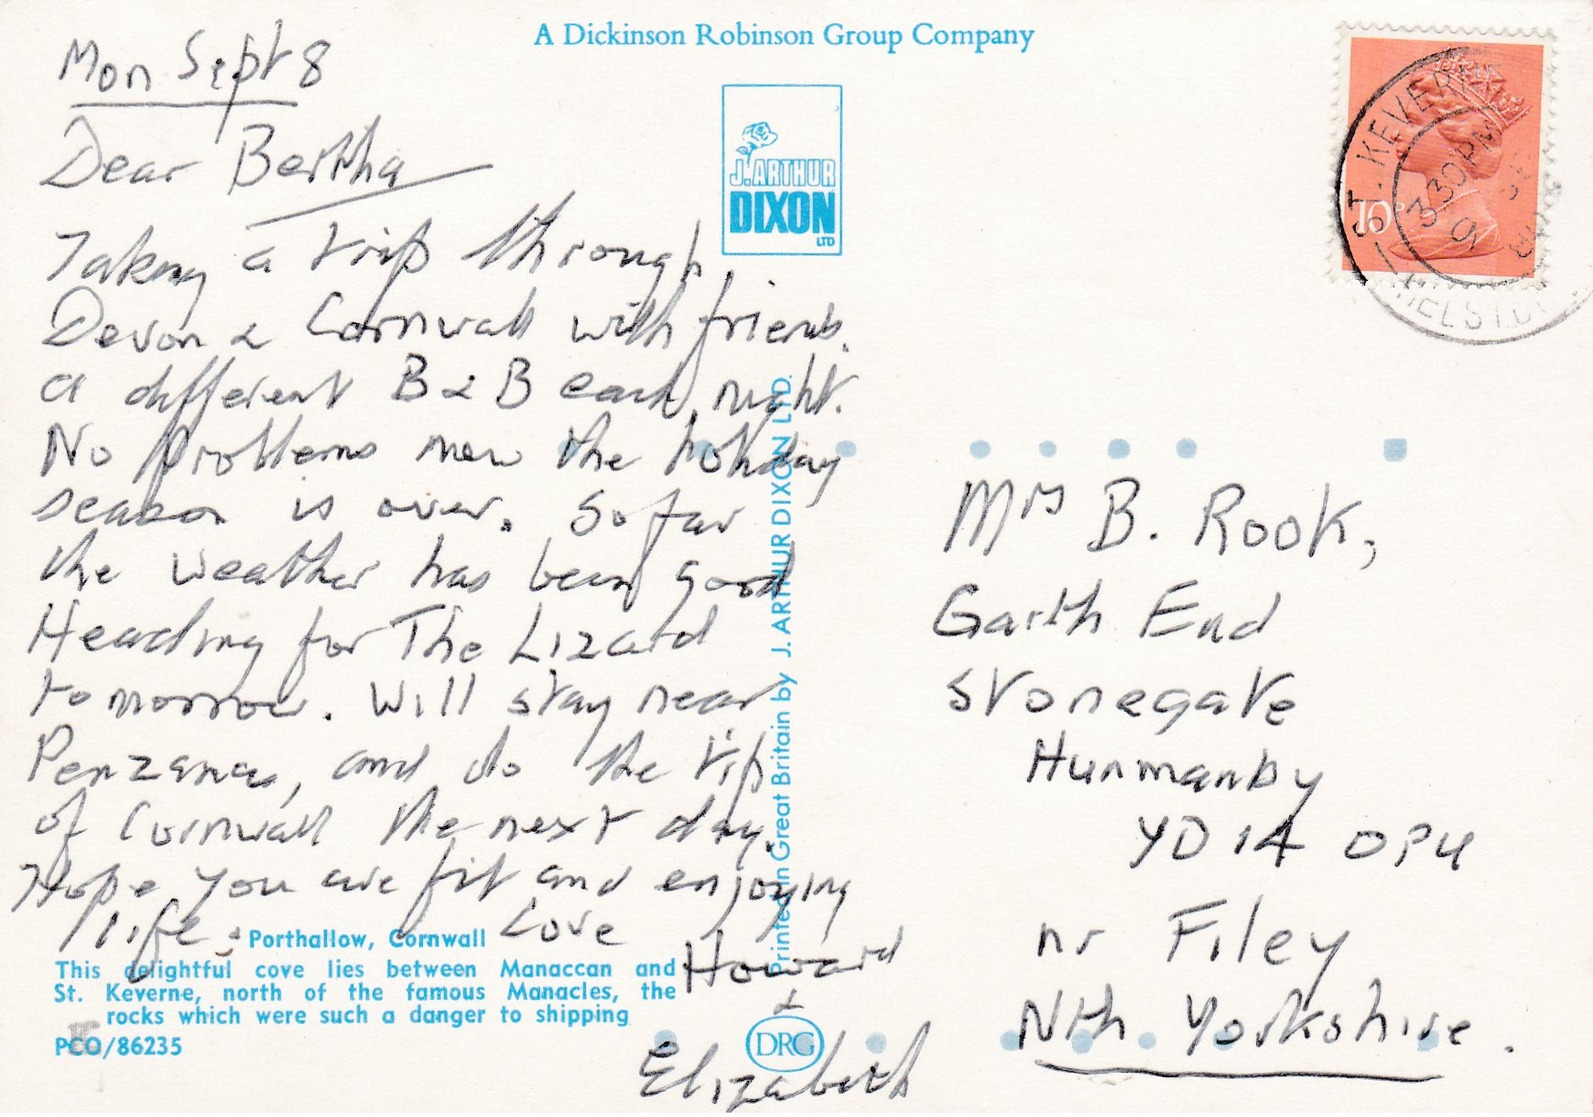 A Dickinson Robinson Group Company
Mon Sept 8
Dear Bertha
Taking a trip through
Devon & Cornwall with friends.
a different B & B each night.
No problems now the holiday
season is over. So far
the weather has been good
Heading for The Lizard
tomorrow. Will stay near
Penzance, and do the tip
of Cornwall the next day.
Hope you are fit and enjoying
life. Love
Howard
&
Elizabeth
Porthallow, Cornwall
This delightful cove lies between Manaccan and
St. Keverne, north of the famous Manacles, the
rocks which were such a danger to shipping
PCO/86235
J. ARTHUR
DIXON
LTD
Printed in Great Britain by J. ARTHUR DIXON LTD.
DRG
10P
ST. KEVERNE
3 30 PM
9 SE
HELSTON
Mrs B. Rook,
Garth End
Stonegate
Hunmanby
YO 14 0PU
nr Filey
Nth Yorkshire.